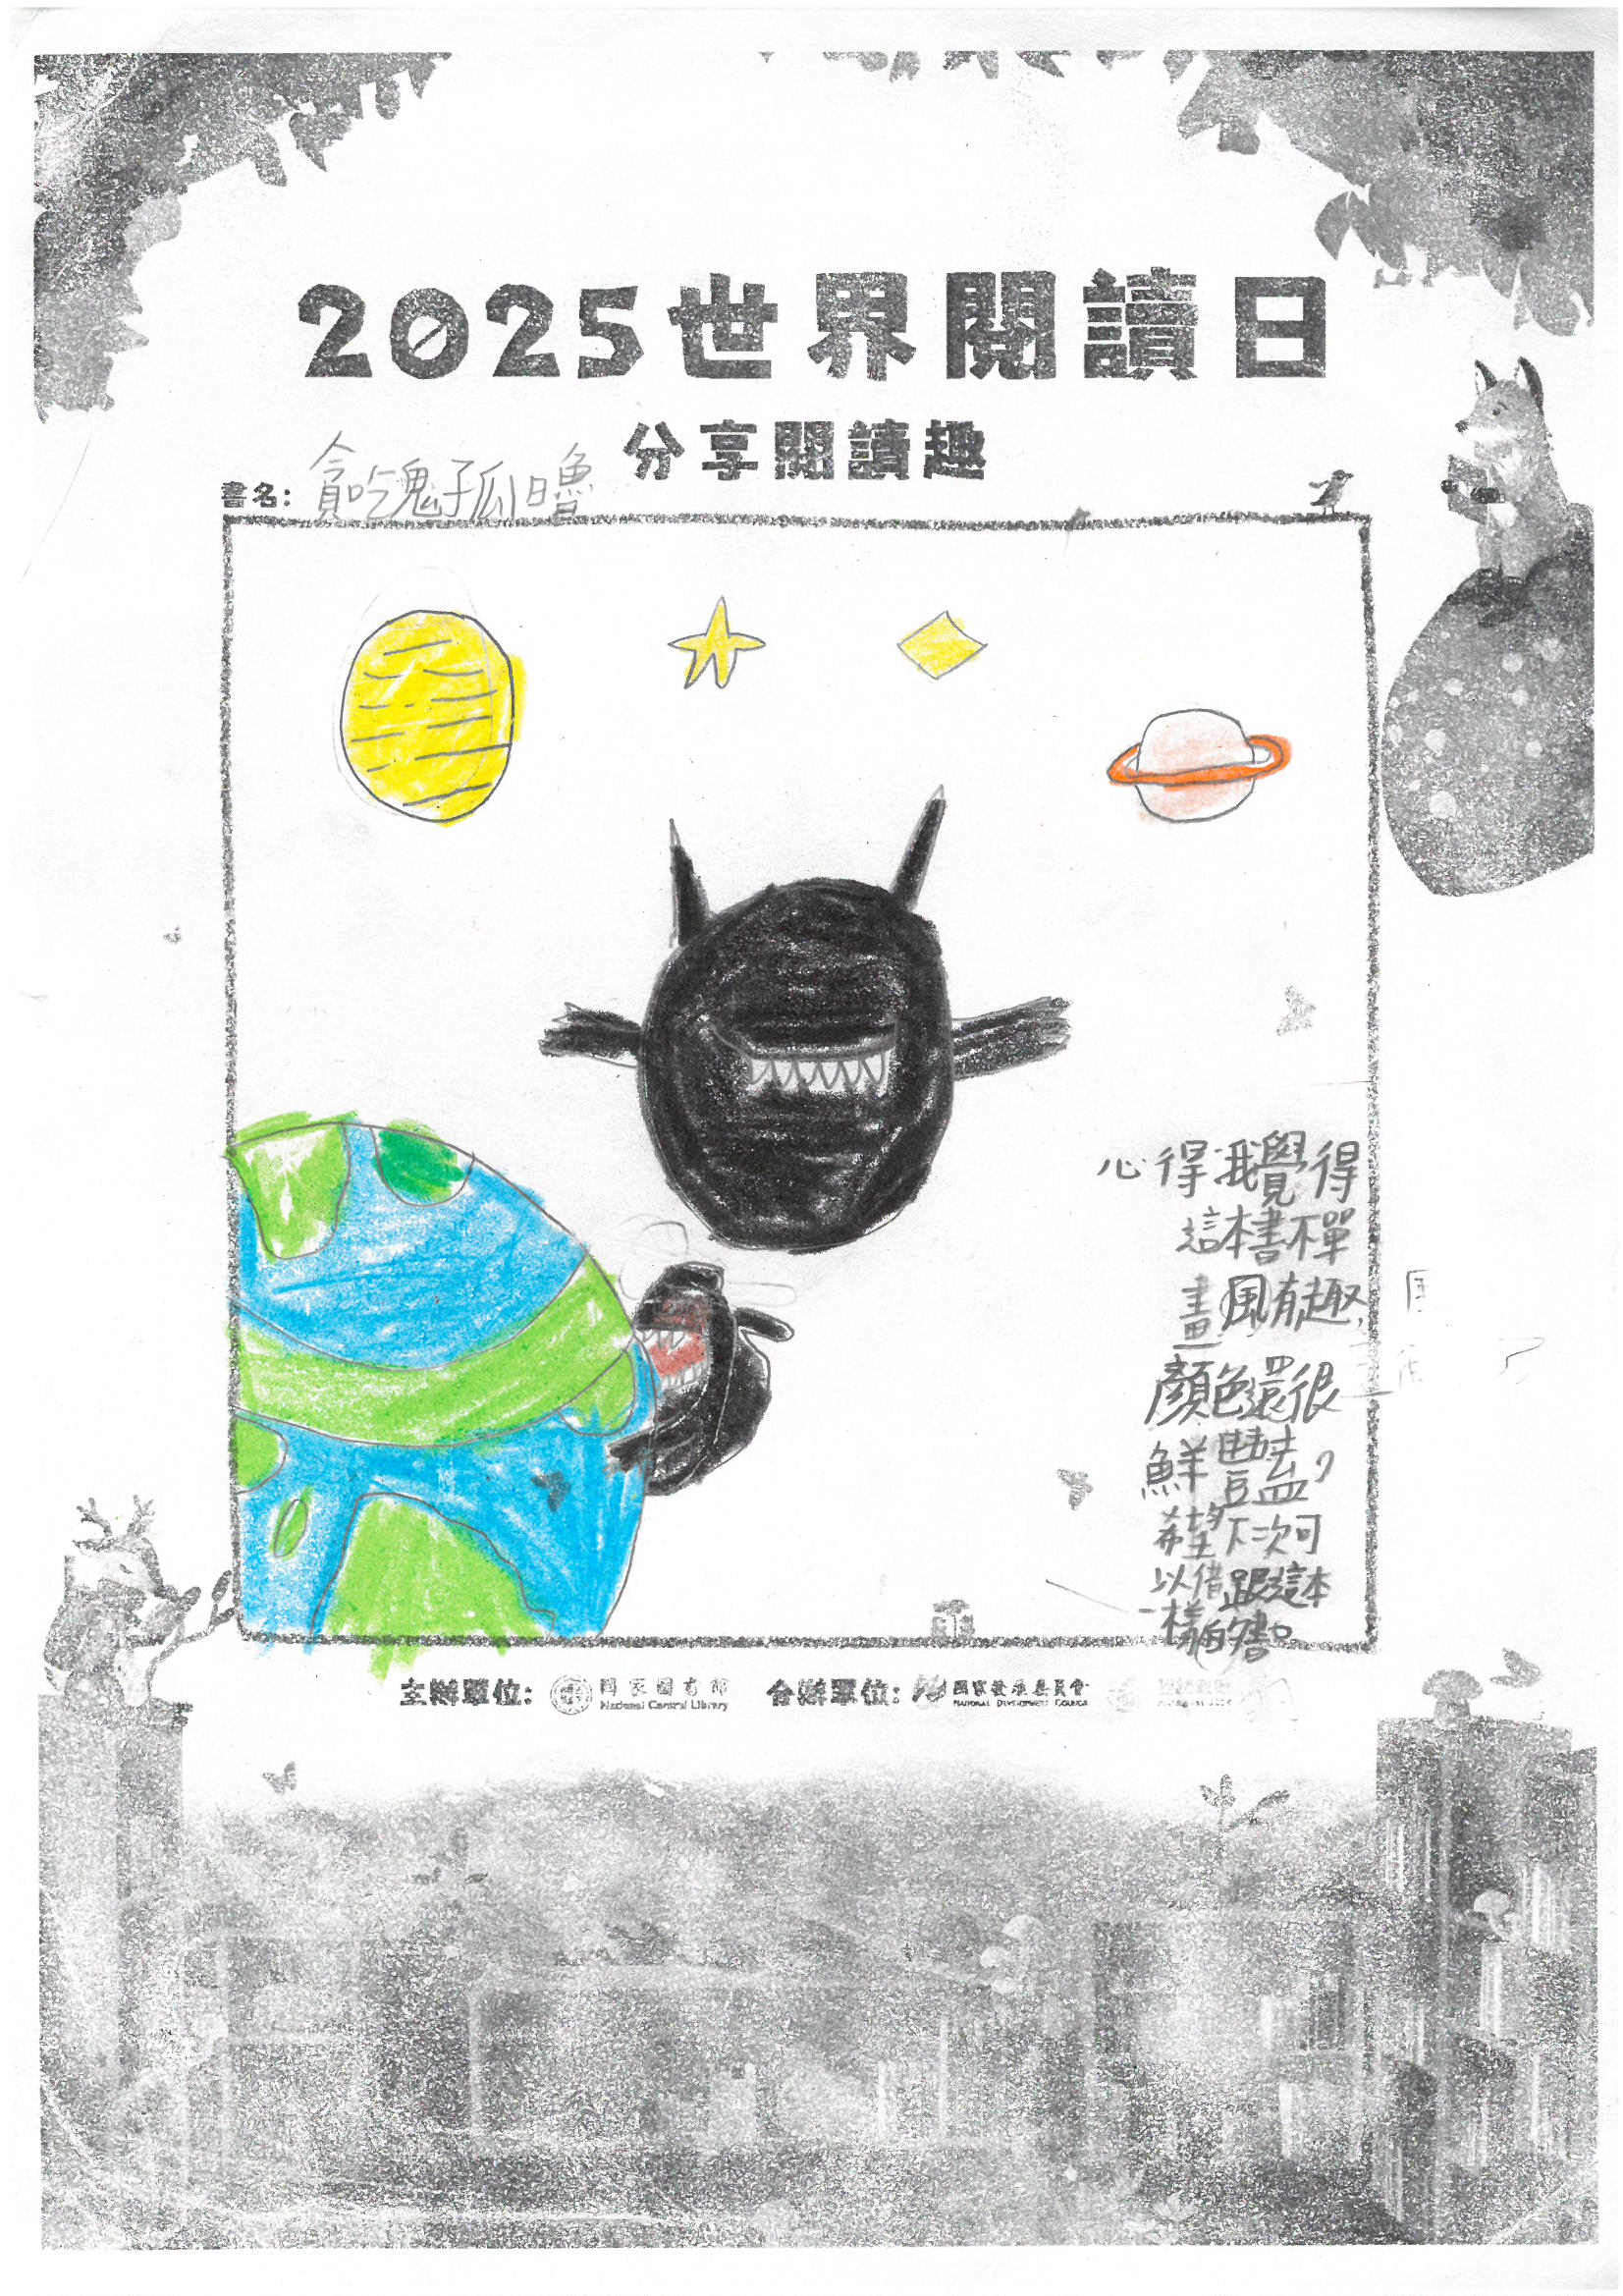 2025世界閱讀日
分享閱讀趣
書名：貪吃鬼子孤嚕
心得我覺得
這本書不單
畫風有趣，
顏色還很
鮮豔，
希望下次可
以借跟這本
一樣的書。
主辦單位： 國家圖書館 National Central Library 合辦單位： 國家發展委員會 NATIONAL DEVELOPMENT COUNCIL